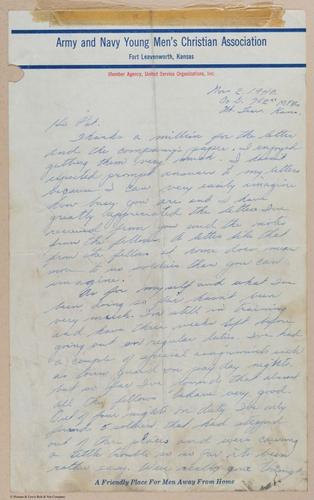 Army and Navy Young Men's Christian Association
Fort Leavenworth, Kansas
Member Agency, United Service Organizations, Inc.
Nov 2, 1942
Kans.
Hi Pat.
Thanks a million for the letter
and the company's paper. I enjoyed
getting them very much. I don't
expect prompt answers to my letters
because I can very easily imagine
how busy you are and I have
greatly appreciated the letters I've
received from you and the
from the fellows. A letter like that
from the fellows at home does mean
more to us soldiers than you can
imagine.
As for myself and what I've
been doing so far hasn't been
very much. I'm still in training
and have three weeks left before
going out on regular duties. I've had
a couple of special assignments such
as town guard on pay day nights
but so far I've found that almost
all the fellows behave very good.
Out of four nights on duty I've only
found 2 soldiers that had stepped
out of their places and were causing
a little trouble so so far its been
rather easy. We've really gone through
A Friendly Place For Men Away From Home